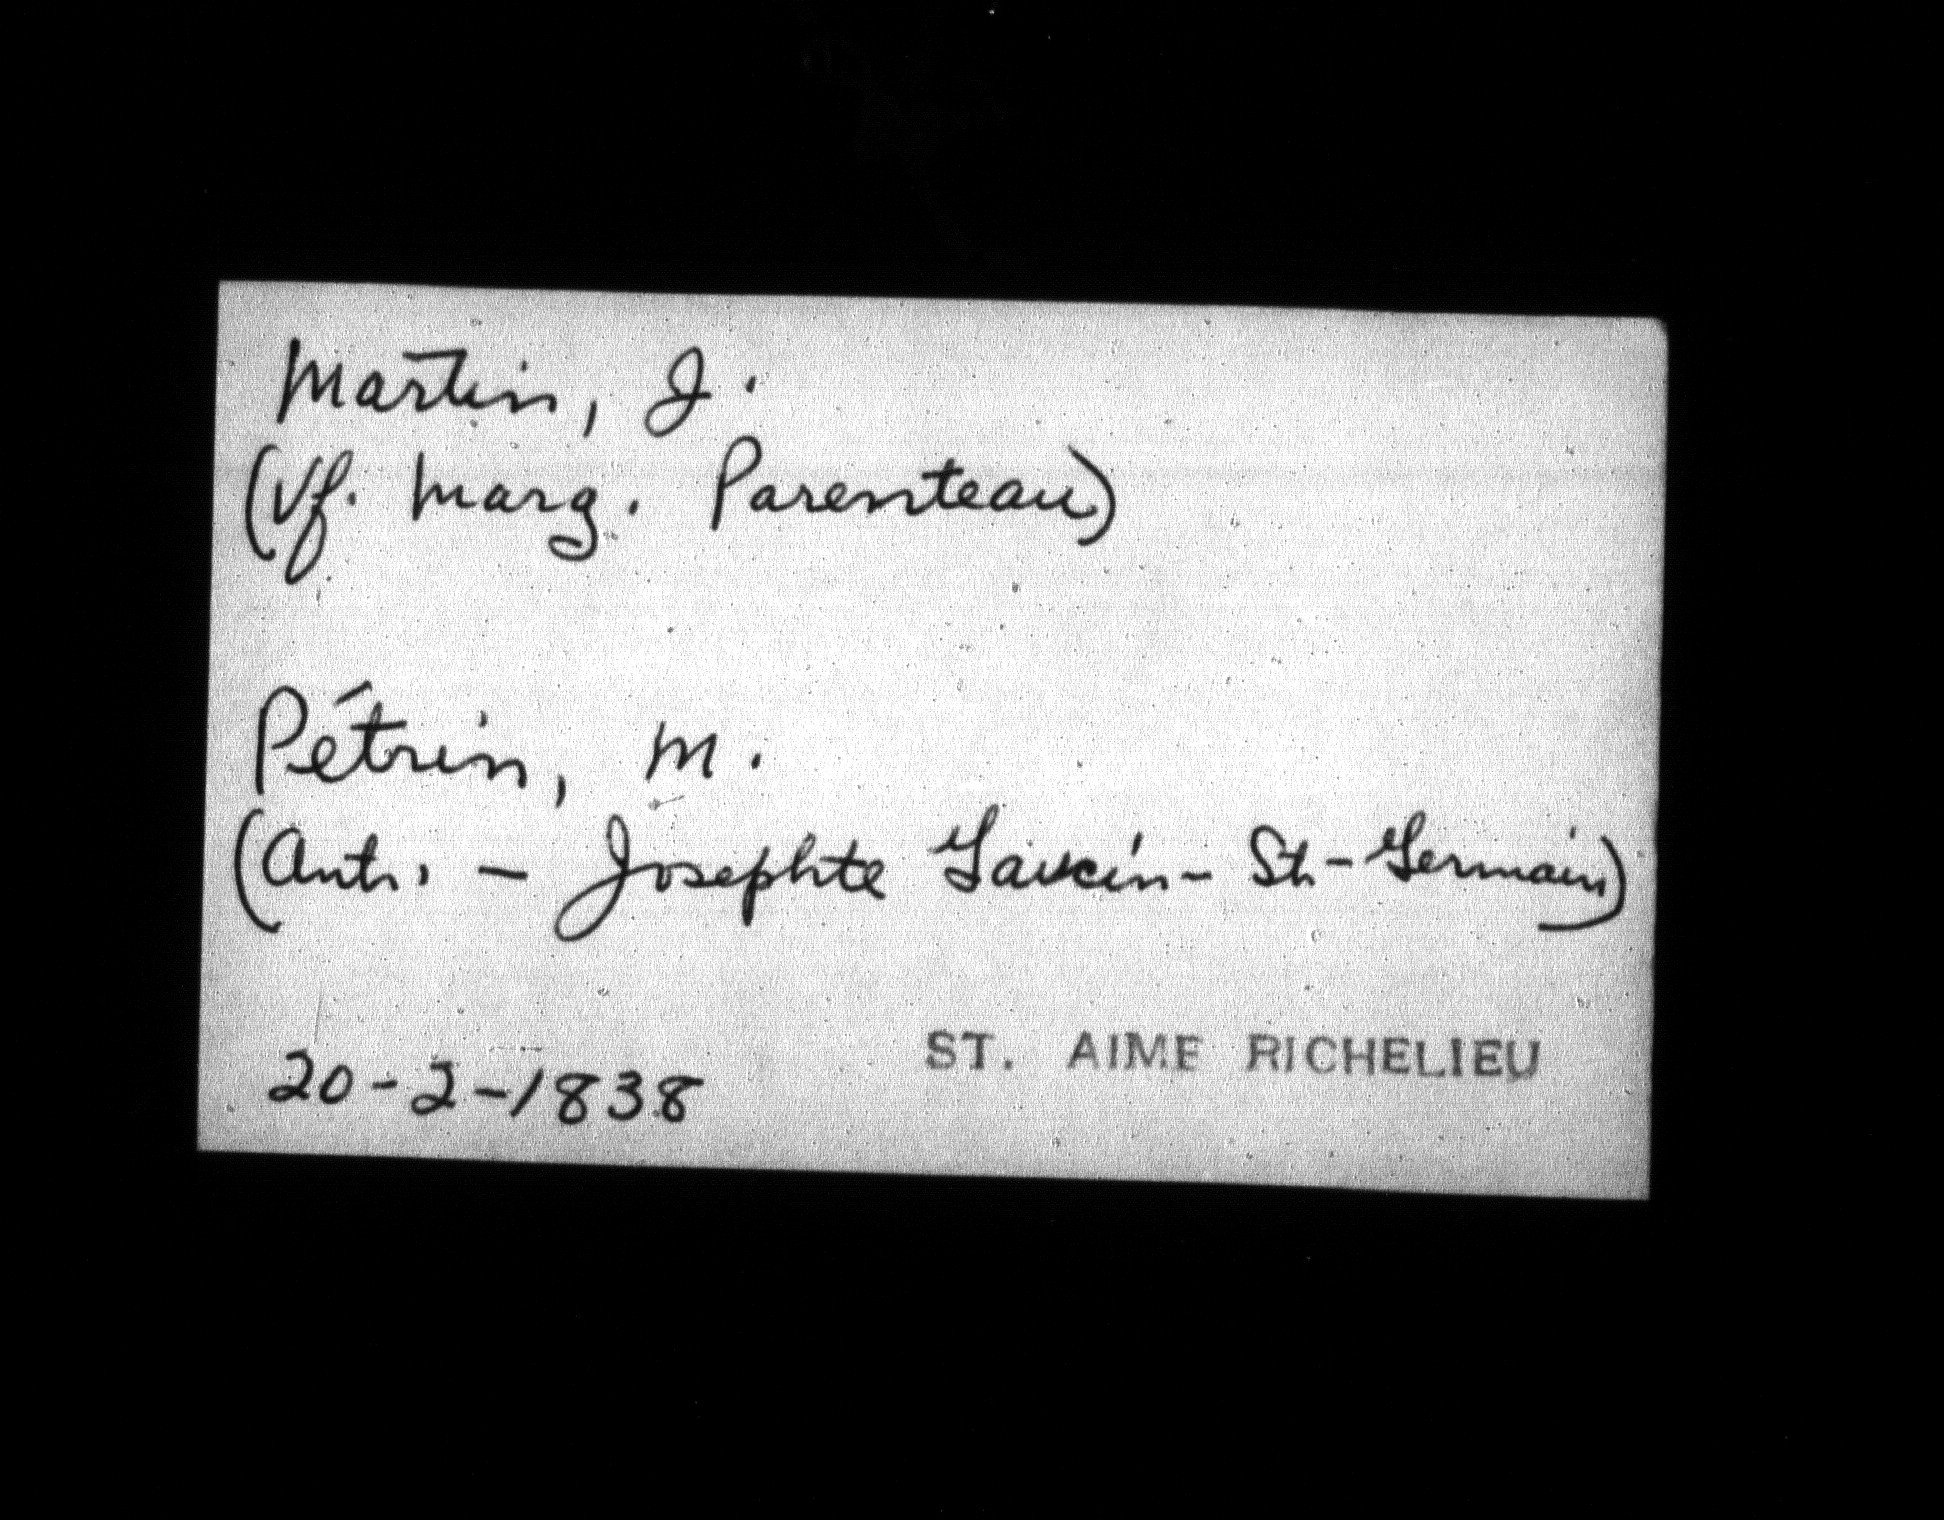 Martin, J.
(Vf. Marg. Parenteau)
Pétrin, M.
(Ant. - Josephte Gaucin - St-Germain)
20-2-1838
ST. AIME RICHELIEU